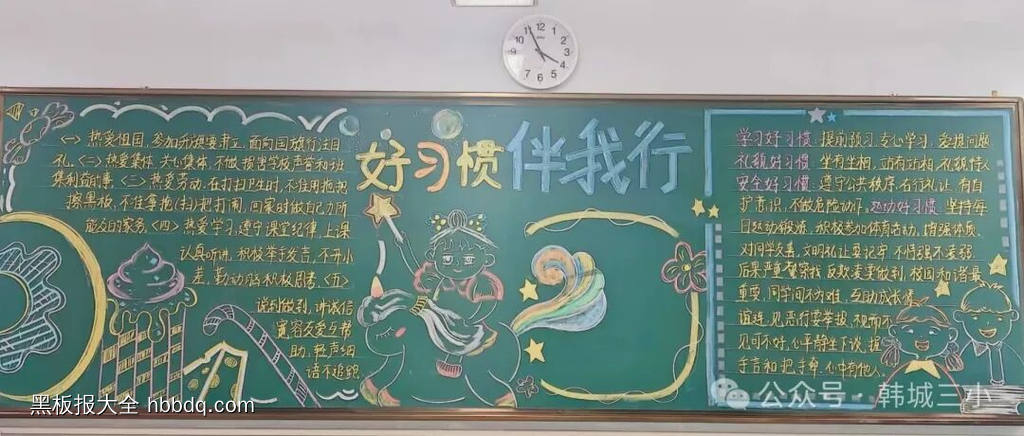 好习惯伴我行
(一) 热爱祖国,参加升旗要肃立,面向国旗行注目
礼。(二) 热爱集体,关心集体,不做损害学校声音和班
集利益的事。(三) 热爱劳动,在打扫卫生时,不准用拖把
擦黑板,不准拿拖(扫)把打闹,回家时做自己力所
能及的家务。(四) 热爱学习,遵守课堂纪律,上课
认真听讲,积极举手发言,不开小
差,勤动脑积极思考。(五)
说到做到,讲诚信
宽容友爱互帮
助,轻声细
语不追跑
学习好习惯 提前预习 专心学习 爱提问题
礼貌好习惯 坐有坐相,动有动相,礼貌待人
安全好习惯 遵守公共秩序,右行礼让,有自
护意识,不做危险动作。运动好习惯 坚持每
日运动锻炼,积极参加体育活动,增强体质。
对同学友善,文明礼让要记牢,不惜强不凌弱
后果严重警察找,反欺凌要做到,校园和谐最
重要,同学间不为难,互助成长
谊连,见恶行要举报,视而不
见可不好,心平静坐下谈,握
手言和把手牵,心中有他人。
12
1
2
3
4
5
6
7
8
9
10
11
黑板报大全 hbbdq.com
公众号 · 韩城三小